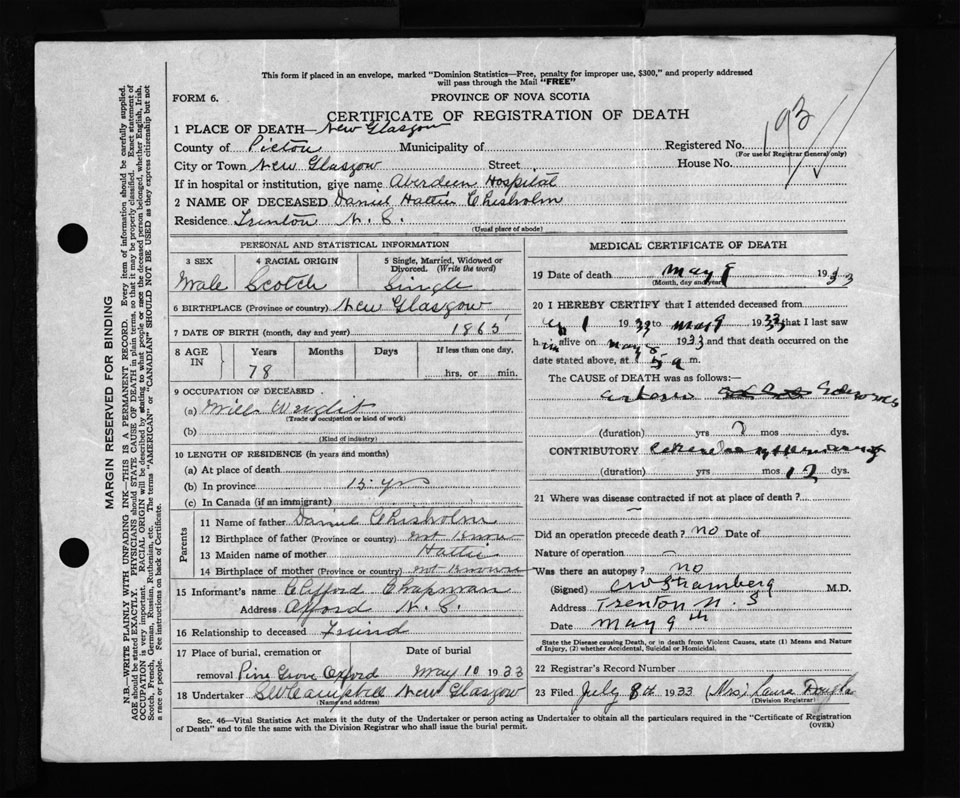 This form if placed in an envelope, marked "Dominion Statistics—Free, penalty for improper use, $300," and properly addressed
will pass through the Mail "FREE"
FORM 6.
PROVINCE OF NOVA SCOTIA
CERTIFICATE OF REGISTRATION OF DEATH
193
1 PLACE OF DEATH— New Glasgow
County of Pictou Municipality of Registered No.
(For use of Registrar General only)
City or Town New Glasgow Street House No.
If in hospital or institution, give name Aberdeen Hospital
2 NAME OF DECEASED Daniel Hattie Chisholm
Residence Trenton N. S.
(Usual place of abode)
PERSONAL AND STATISTICAL INFORMATION
3 SEX 4 RACIAL ORIGIN 5 Single, Married, Widowed or Divorced. (Write the word)
Male Scotch Single
6 BIRTHPLACE (Province or country) New Glasgow
7 DATE OF BIRTH (month, day and year) 1865
8 AGE IN Years Months Days If less than one day,
78 hrs. or min.
9 OCCUPATION OF DECEASED
(a) Mill Wright
(Trade of occupation or kind of work)
(b)
(Kind of industry)
10 LENGTH OF RESIDENCE (in years and months)
(a) At place of death
(b) In province 15 yrs
(c) In Canada (if an immigrant)
Parents
11 Name of father Daniel Chisholm
12 Birthplace of father (Province or country) not Known
13 Maiden name of mother Hattie
14 Birthplace of mother (Province or country) not Known
15 Informant's name Clifford Chapman
Address Oxford N. S.
16 Relationship to deceased Friend
17 Place of burial, cremation or Date of burial
removal Pine Grove Oxford May 10 1933
18 Undertaker New Glasgow
(Name and address)
MEDICAL CERTIFICATE OF DEATH
19 Date of death May 9 1933
(Month, day and year)
20 I HEREBY CERTIFY that I attended deceased from
1 1933 to May 9 1933 that I last saw
him alive on May 8 1933 and that death occurred on the
date stated above, at a m.
The CAUSE OF DEATH was as follows:
Arterio
(duration) yrs ? mos dys.
CONTRIBUTORY
(duration) yrs mos 12 dys.
21 Where was disease contracted if not at place of death?
Did an operation precede death? no Date of
Nature of operation
Was there an autopsy? no
(Signed) M.D.
Address Trenton N. S
Date May 9th
State the Disease causing Death, or in death from Violent Causes, state (1) Means and Nature
of Injury, (2) whether Accidental, Suicidal or Homicidal.
22 Registrar's Record Number
23 Filed July 8th 1933 (Mrs) Laura Douglas
(Division Registrar)
Sec. 46—Vital Statistics Act makes it the duty of the Undertaker or person acting as Undertaker to obtain all the particulars required in the "Certificate of Registration
of Death" and to file the same with the Division Registrar who shall issue the burial permit.
(OVER)
MARGIN RESERVED FOR BINDING
N.B.—WRITE PLAINLY WITH UNFADING INK—THIS IS A PERMANENT RECORD. Every item of information should be carefully supplied.
AGE should be stated EXACTLY. PHYSICIANS should STATE CAUSE OF DEATH in plain terms, so that it may be properly classified. Exact statement of
OCCUPATION is very important. RACIAL ORIGIN will be described by stating to what people or race the deceased person belonged, whether English, Irish,
Scotch, French, German, Russian, Ruthenian, etc. The terms "AMERICAN" or "CANADIAN" SHOULD NOT BE USED as they express citizenship but not
a race or people. Fee instructions on back of Certificate.